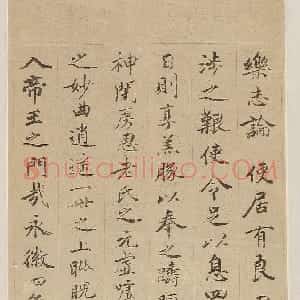 樂志論 使居有良
涉之艱使令足以息四
日則烹羔豚以奉之躊
神閨房思老氏之元虛
之妙曲逍遙一世之上睥睨
入帝王之門哉永徽四年
Shufaziliao.com